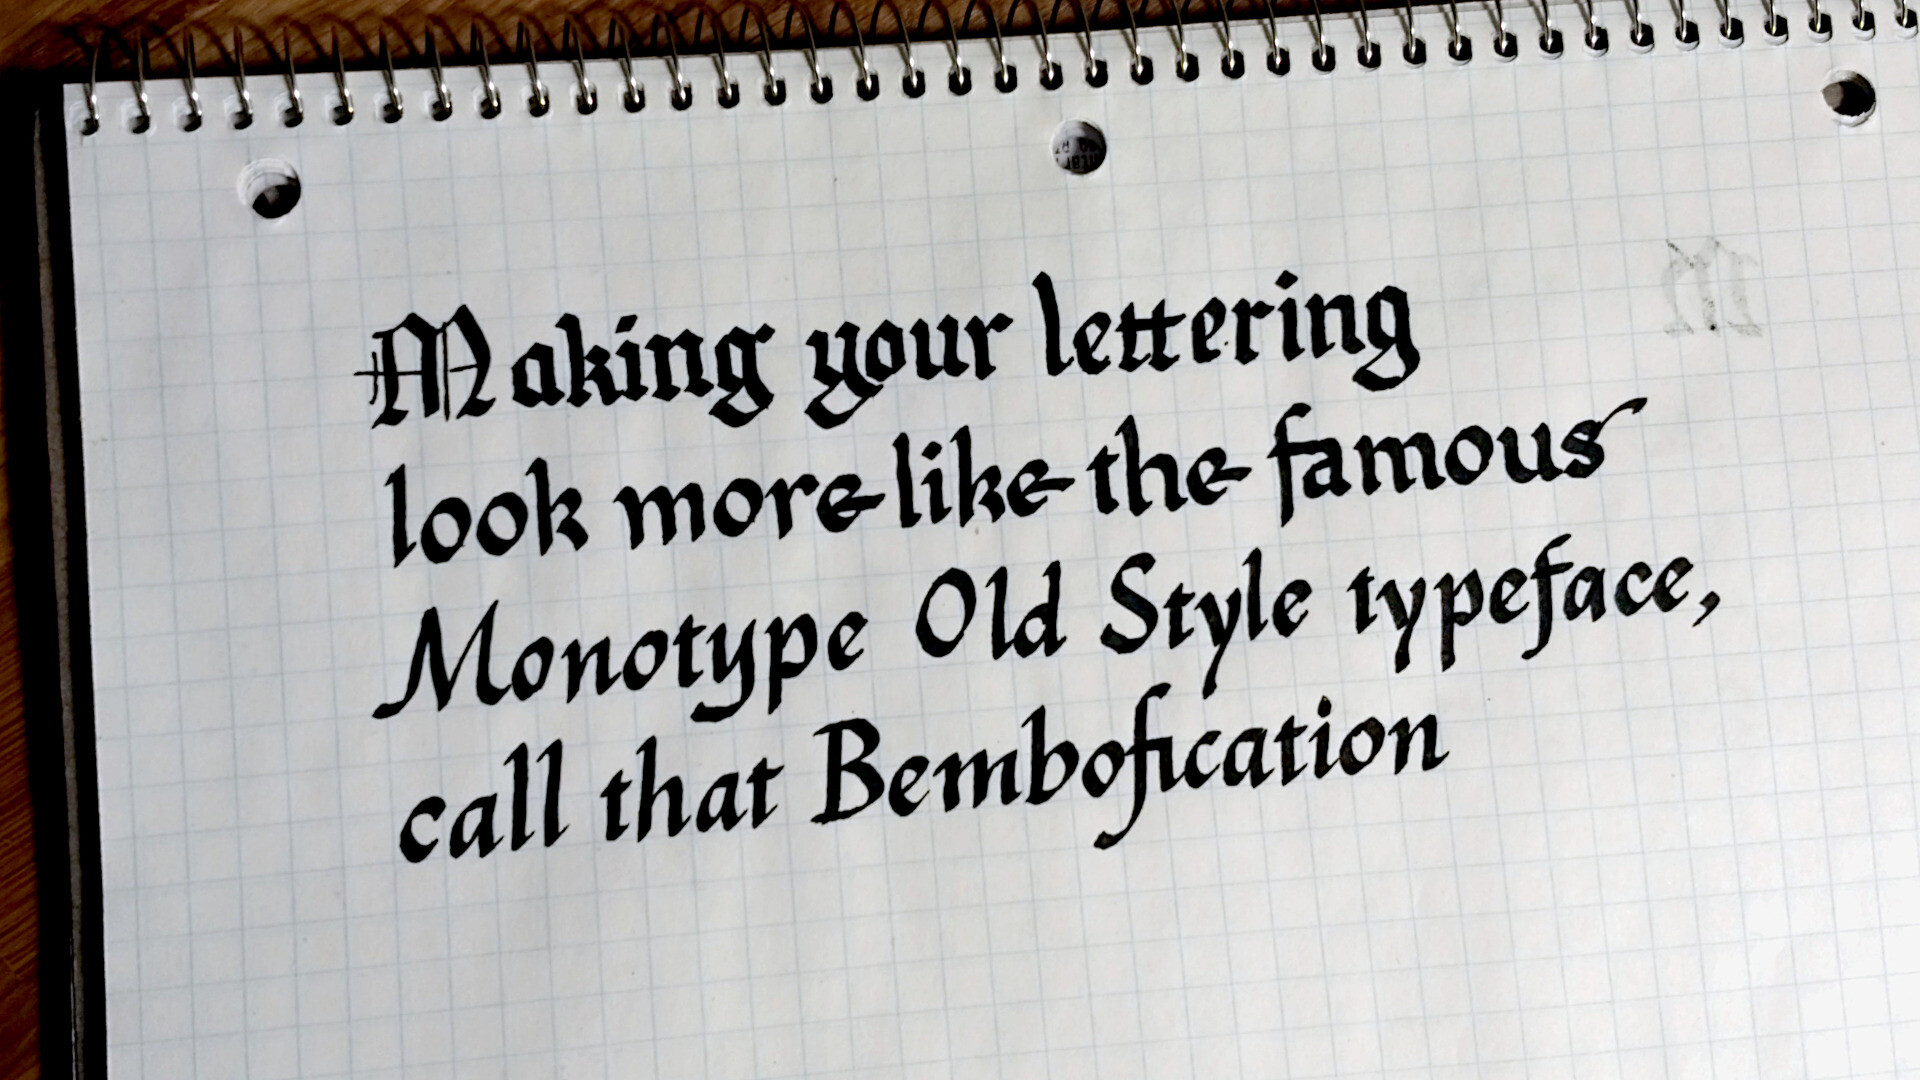 Making your lettering
look more like the famous
Monotype Old Style typeface,
call that Bembofication